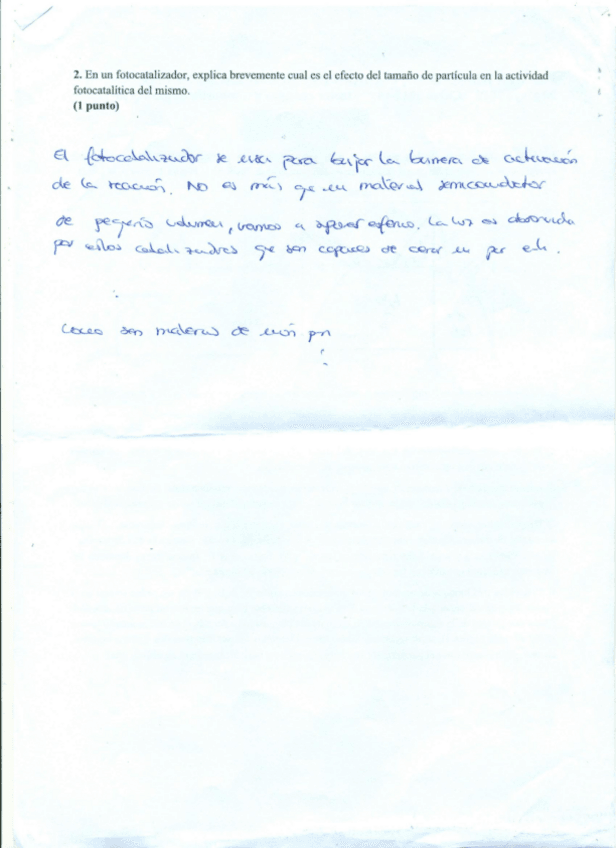 2. En un fotocatalizador, explica brevemente cual es el efecto del tamaño de partícula en la actividad
fotocatalítica del mismo.
(1 punto)
El fotocatalizador se usa para bajar la barrera de activación
de la reacción. No es más que un material semiconductor
de pequeño volumen, vamos a suponer esférico. La luz es absorvida
por estos catalizadores que son capaces de crear un par
son materiales de